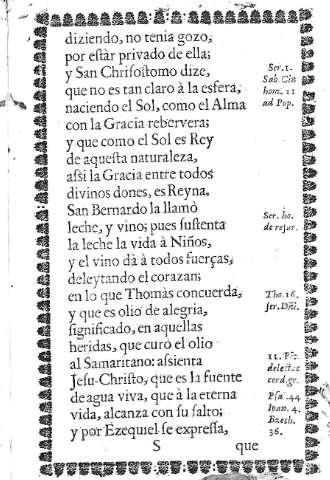 diziendo, no tenia gozo,
por estàr privado de ella;
y San Chrisostomo dize,
que no es tan claro à la esfera,
naciendo el Sol, como el Alma
con la Gracia rebervera;
y que como el Sol es Rey
de aquesta naturaleza,
assi la Gracia entre todos
divinos dones, es Reyna.
San Bernardo la llamò
leche, y vino; pues sustenta
la leche la vida à Niños,
y el vino dà à todos fuerças,
deleytando el corazan;
en lo que Thomàs concuerda,
y que es olio de alegria,
significado, en aquellas
heridas, que curò el olio
al Samaritano: assienta
Jesu-Christo, que es la fuente
de agua viva, que à la eterna
vida, alcanza con su salto;
y por Ezequiel se expressa,
S que
Ser. 1.
Sab. Cin
hom. 21
ad Pop.
Ser. ho.
de resur.
Tho. 16.
ser. Dñi.
11.
cord. gr.
Psa. 44
Ioan. 4.
36.